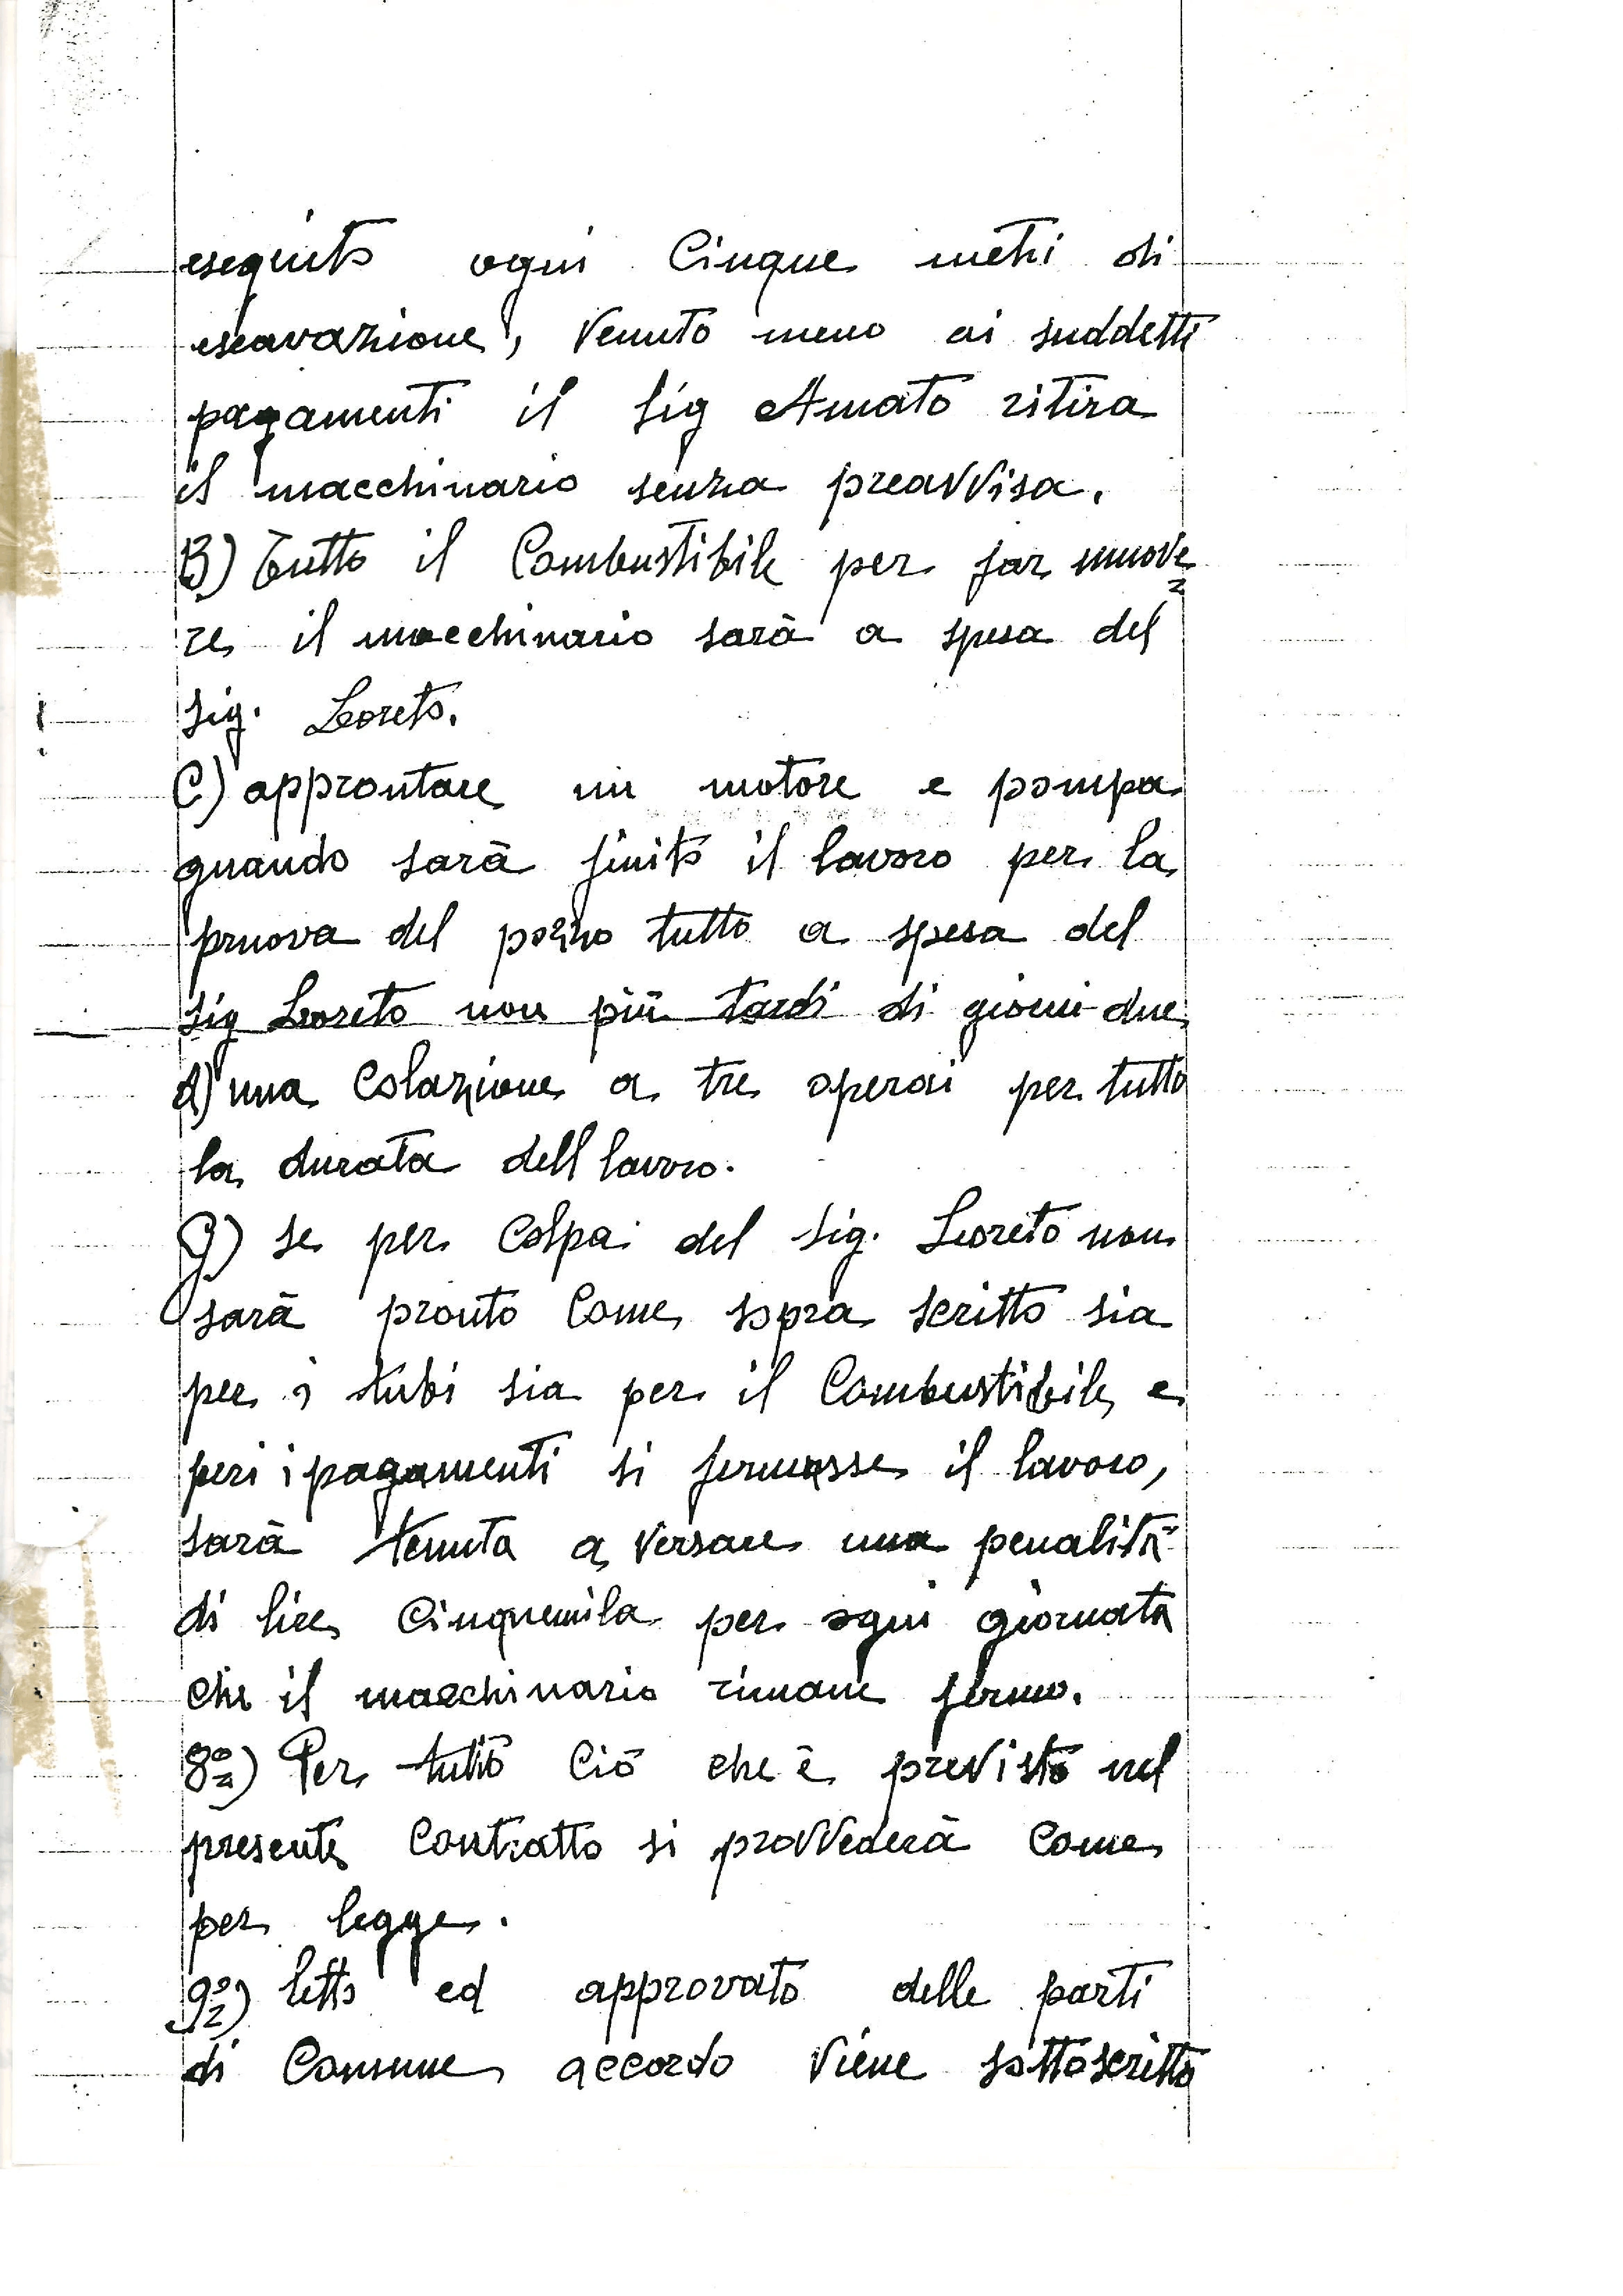 eseguito ogni Cinque metri di
escavazione, Venuto meno ai suddetti
pagamenti il sig Amato ritira
il macchinario senza preavvisa.
B) Tutto il Combustibile per far muove=
re il macchinario sarà a spesa del
sig. Loreto.
C) approntare un motore e pompa
quando sarà finito il lavoro per la
pruova del pozzo tutto a spesa del
sig Loreto non più tardi di giorni due
d) una Colazione a tre operai per tutto
la durata dell lavoro.
G) se per Colpa del sig. Loreto non
sarà pronto Come sopra scritto sia
per i tubi sia per il Combustibile e
peri i pagamenti si fermasse il lavoro,
sarà tenuta a Versare una penalità
di lire Cinquemila per ogni giornata
che il macchinario rimane fermo.
8º) Per tutto Ciò che è previsto nel
presente Contratto si provvederà Come
per legge.
9º) letto ed approvato delle parti
di Comune accordo Viene sottoscritto